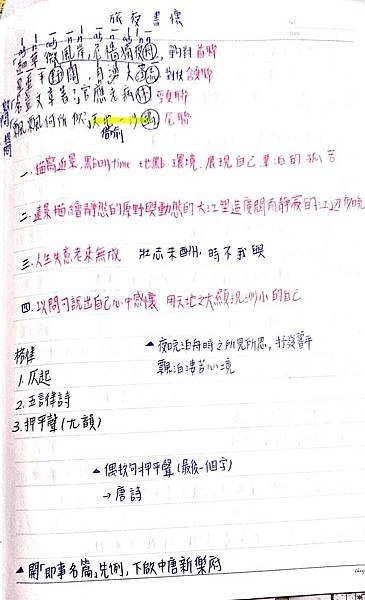 旅夜書懷
細草微風岸,危檣獨夜舟,對 首聯
星垂平野闊,月湧大江流 對仗 頷聯
名豈文章著,官應老病休 頸聯
飄飄何所似,天地一沙鷗 尾聯
借喻
一.描寫近景,點明time 地點 環境.展現自己單泊的孤苦
二.遠景描繪靜態的原野與動態的大江塑造廣闊而靜寂的江邊夜晚
三.人生失意老來無成 壯志未酬,時不我與
四.以問句說出自己心中感懷 用天地之大顯現渺小的自己
格律
▲夜晚泊舟時之所見所思,抒發暮年
飄泊悽苦心境
1.仄起
2.五言律詩
3.押平聲(尤韻)
▲偶數句押平聲(最後一個字)
→唐詩
▲開「即事名篇」先例,下啟中唐新樂府